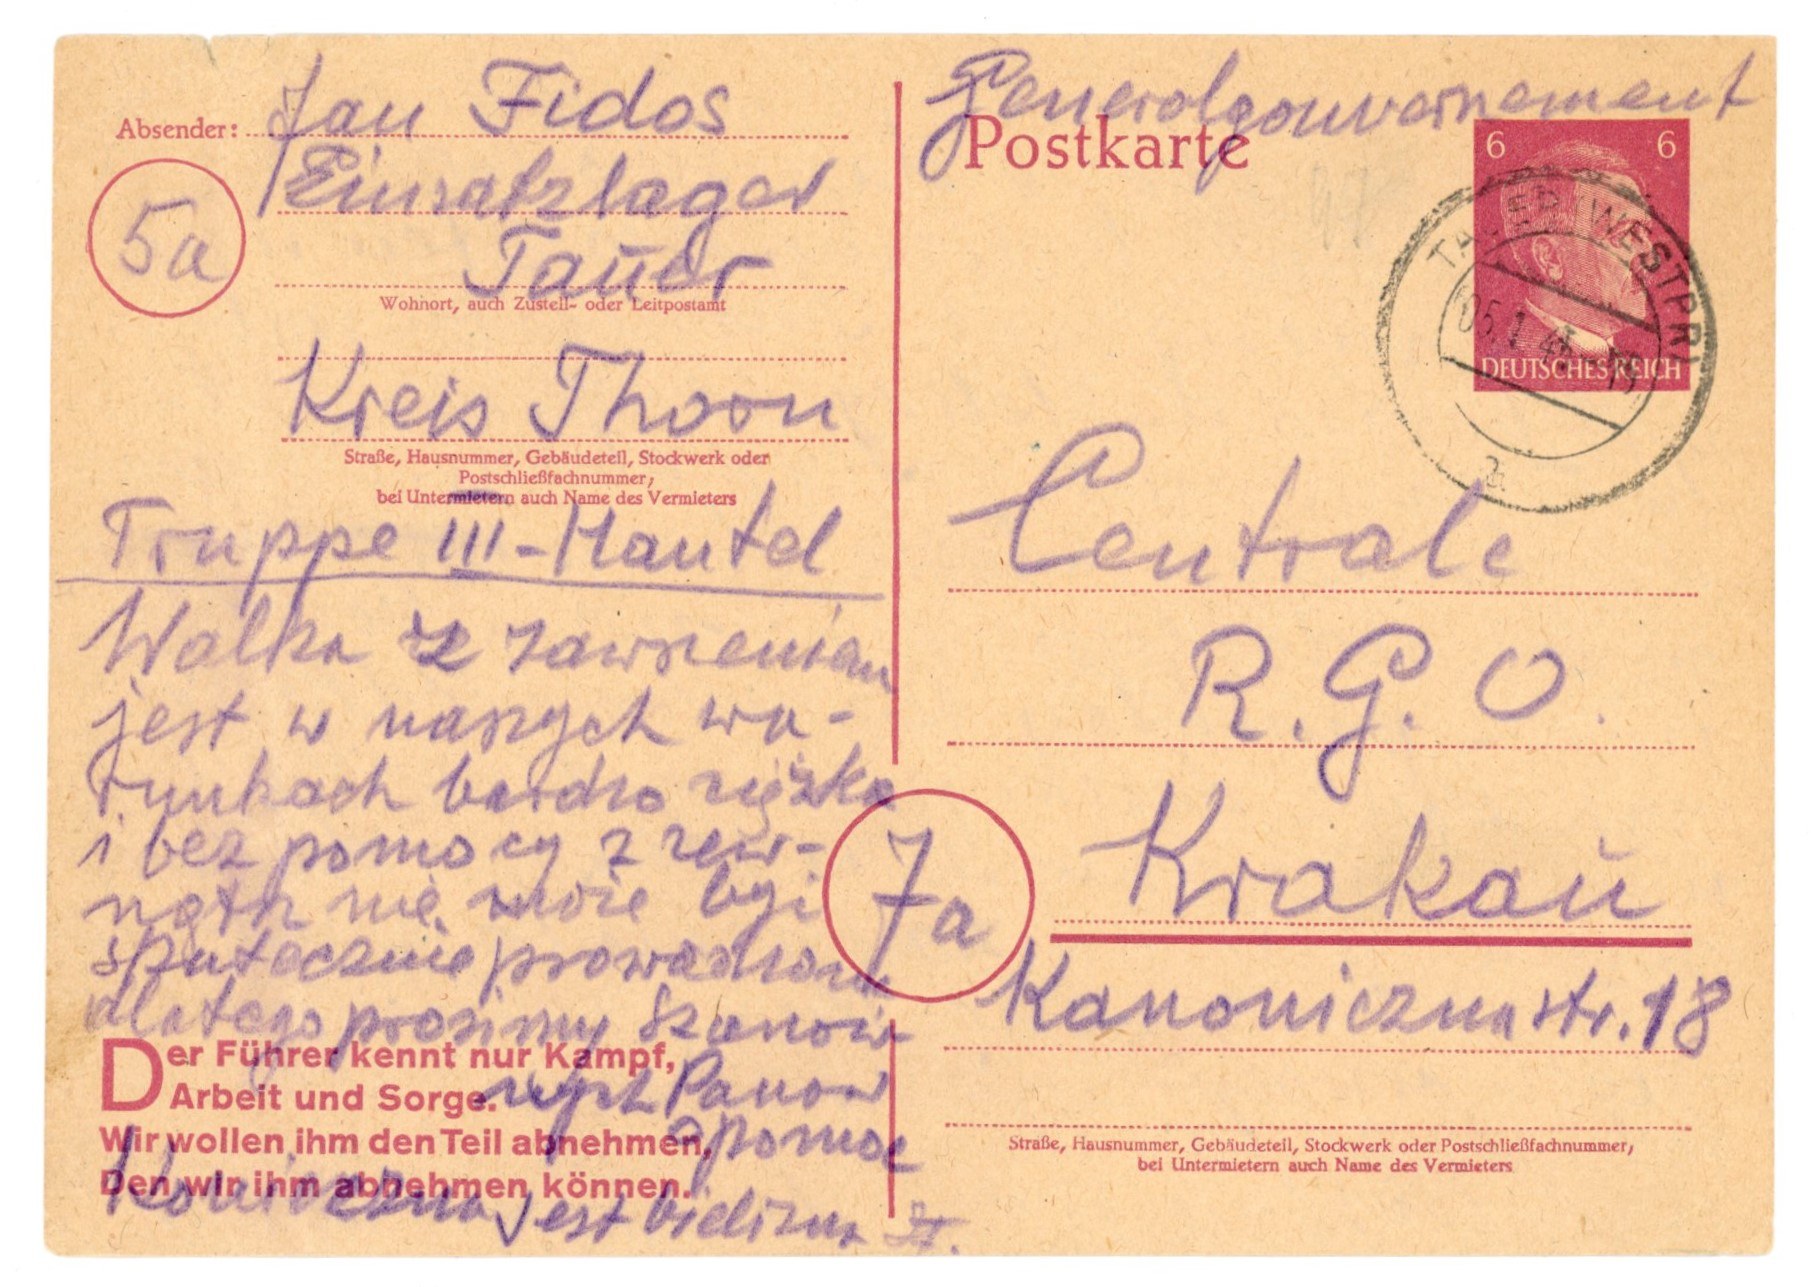 Absender: Jan Fidos
Einsatzlager
5a
Tauer
Wohnort, auch Zustell- oder Leitpostamt
Kreis Thorn
Straße, Hausnummer, Gebäudeteil, Stockwerk oder
Postschließfachnummer;
bei Untermietern auch Name des Vermieters
Truppe III-Mantel
Walka z zawszeniem
jest w naszych wa-
runkach bardzo ciężka
i bez pomocy z zew-
nątrz nie może być
skutecznie prowadzona
dlatego prosimy Szanow-
nych Panów
o pomoc
Konieczna jest bielizna
Der Führer kennt nur Kampf,
Arbeit und Sorge.
Wir wollen ihm den Teil abnehmen,
Den wir ihm abnehmen können.
Generalgouvernement
Postkarte
6 6
DEUTSCHES REICH
(WESTPR)
a
Centrale
R. G. O.
7a
Krakau
Kanoniczna str. 18
Straße, Hausnummer, Gebäudeteil, Stockwerk oder Postschließfachnummer;
bei Untermietern auch Name des Vermieters